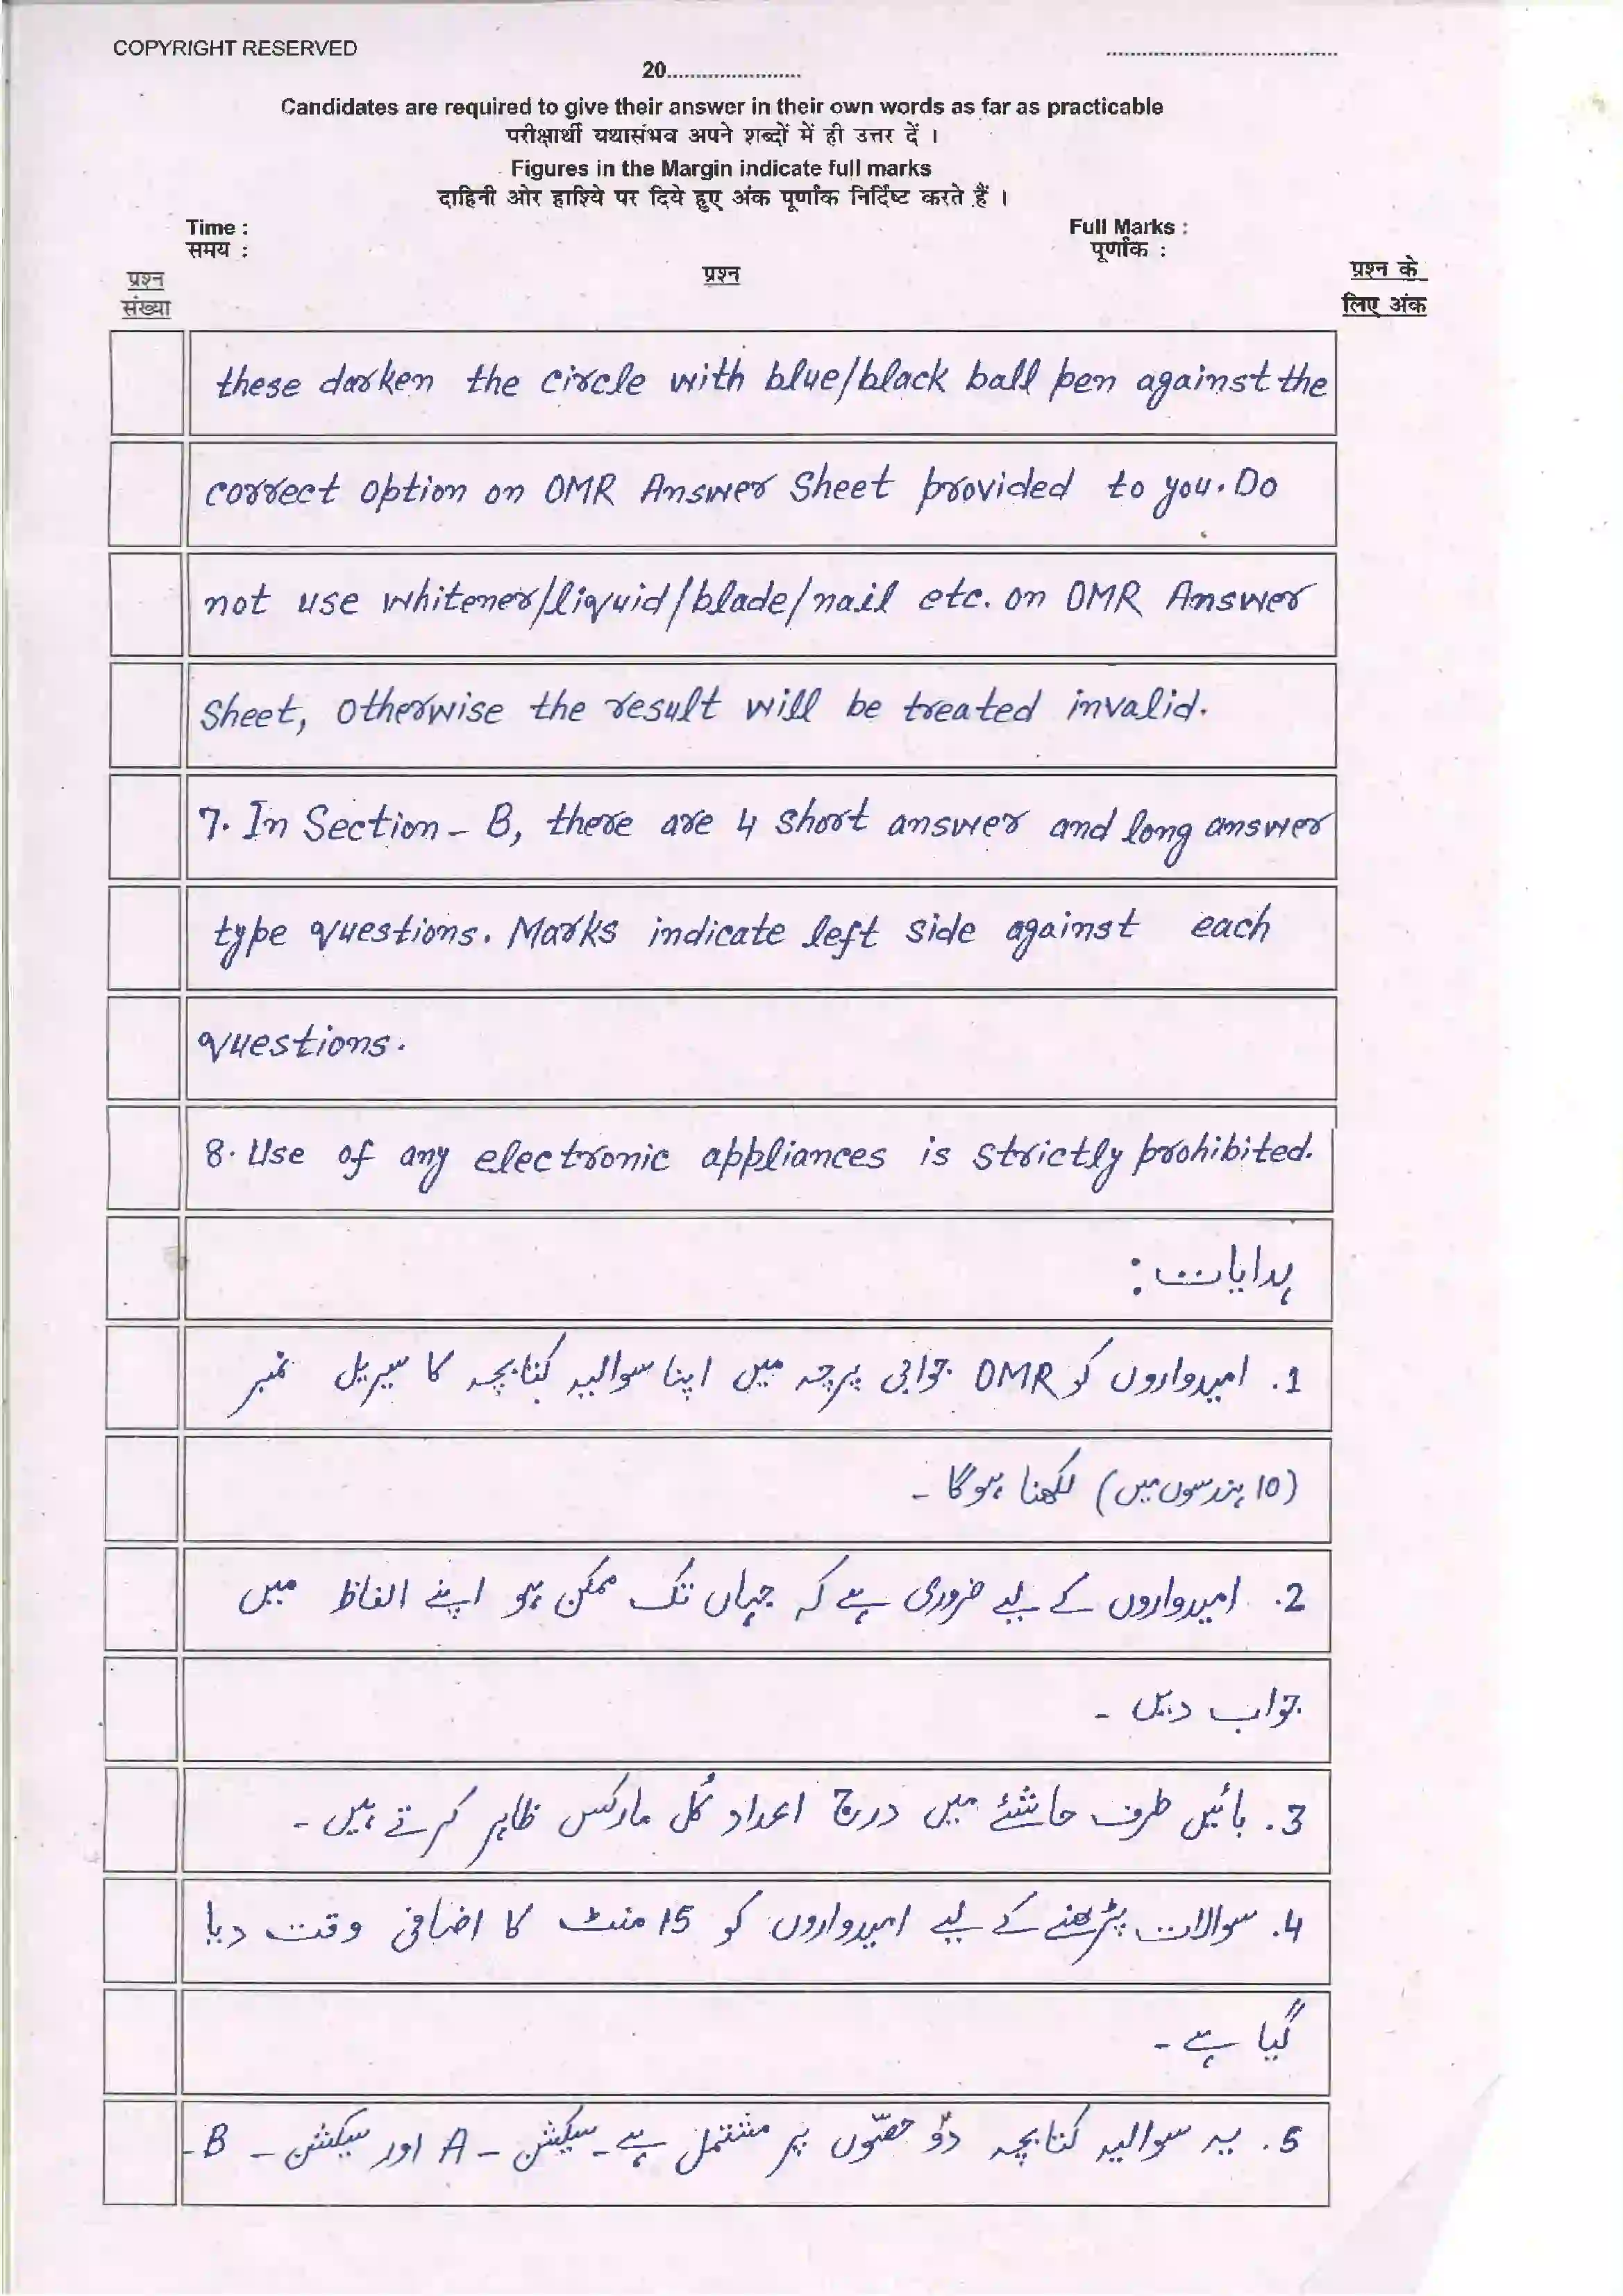 COPYRIGHT RESERVED
20.......................
Candidates are required to give their answer in their own words as far as practicable
परीक्षार्थी यथासंभव अपने शब्दों में ही उत्तर दें ।
Figures in the Margin indicate full marks
दाहिनी ओर हाशिये पर दिये हुए अंक पूर्णांक निर्दिष्ट करते हैं ।
Time : Full Marks :
समय : पूर्णांक :
प्रश्न संख्या
प्रश्न
प्रश्न के लिए अंक
these darken the circle with blue/black ball pen against the
correct option on OMR Answer Sheet provided to you. Do
not use whitener/liquid/blade/nail etc. on OMR Answer
Sheet, otherwise the result will be treated invalid.
7. In Section - B, there are 4 short answer and long answer
type questions. Marks indicate left side against each
questions.
8. Use of any electronic appliances is strictly prohibited.
ہدایات :
1. امیدواروں کو OMR جوابی پرچہ میں اپنا سوالیہ کتابچہ کا سیریل نمبر
(10 ہندسوں میں) لکھنا ہوگا ۔
2. امیدواروں کے لیے ضروری ہے کہ جہاں تک ممکن ہو اپنے الفاظ میں
جواب دیں ۔
3. بائیں طرف حاشئے میں درج اعداد کُل مارکس ظاہر کرتے ہیں ۔
4. سوالات پڑھنے کے لیے امیدواروں کو 15 منٹ کا اضافی وقت دیا
گیا ہے ۔
5. یہ سوالیہ کتابچہ دو حصّوں پر مشتمل ہے ۔ سیکشن - A اور سیکشن - B -